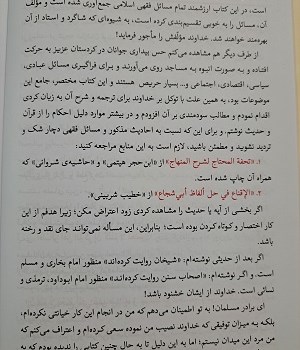 است، در این کتاب ارزشمند تمام مسائل فقهی اسلامی جمع‌آوری شده است و مؤلف
آن، مسائل را به خوبی تقسیم‌بندی کرده است، به شیوه‌ای که شاگرد و استاد از آن
بهره‌مند خواهند شد. خداوند مؤلفش را مأجور فرماید!
از طرف دیگر هم مشاهده می‌کنم حس بیداری جوانان در کردستان عزیز به حرکت
افتاده و به صورت انبوه به مساجد روی می‌آورند و برای فراگیری مسائل عبادی،
سیاسی، اقتصادی، اجتماعی و... بسیار حریص هستند و این کتاب مختصر، جامع این
موضوعات بود، به همین علت با توکل بر خداوند برای ترجمه و شرح آن به زبان کردی
اقدام نمودم و مطالب سودمندی بر آن افزودم و در موارد مختلف دلیل احکام را از قرآن
و حدیث نوشتم. و برای این که نسبت به احادیث مذکور و مسائل فقهی دچار شک و
تردید نشوید و مطمئن باشید، لازم است به این منابع مراجعه کنید:
۱. «تحفة المحتاج لشرح المنهاج» از «ابن حجر هیتمی» و «حاشیه‌ی شروانی» که
همراه آن چاپ شده است.
۲. «الإقناع في حل ألفاظ أبي‌شجاع» از «خطیب شربینی».
اگر بخشی از آیه یا حدیث را مشاهده کردی زود اعتراض مکن؛ زیرا هدفم از این
کار اختصار و کوتاه کردن بوده است؛ بنابراین، این مسأله نمی‌تواند جای نقد و رخنه
باشد.
اگر بعد از حدیثی نوشته‌ام: «شیخان روایت کرده‌اند» منظور امام بخاری و مسلم
است. و اگر نوشته‌ام: «اصحاب سنن روایت کرده‌اند» منظور امام ابوداود، ترمذی و
نسائی است. خداوند از ایشان خشنود باشد!
ای برادر مسلمان! به تو اطمینان می‌دهم که من در انجام این کار خیانتی نکرده‌ام،
بلکه به میزان توفیقی که خداوند نصیب من نموده سعی کرده‌ام و اعتراف می‌کنم که
من مرد این میدان نیستم؛ اما به این دلیل تا به حال چنین کتابی را ندیده بودم که به